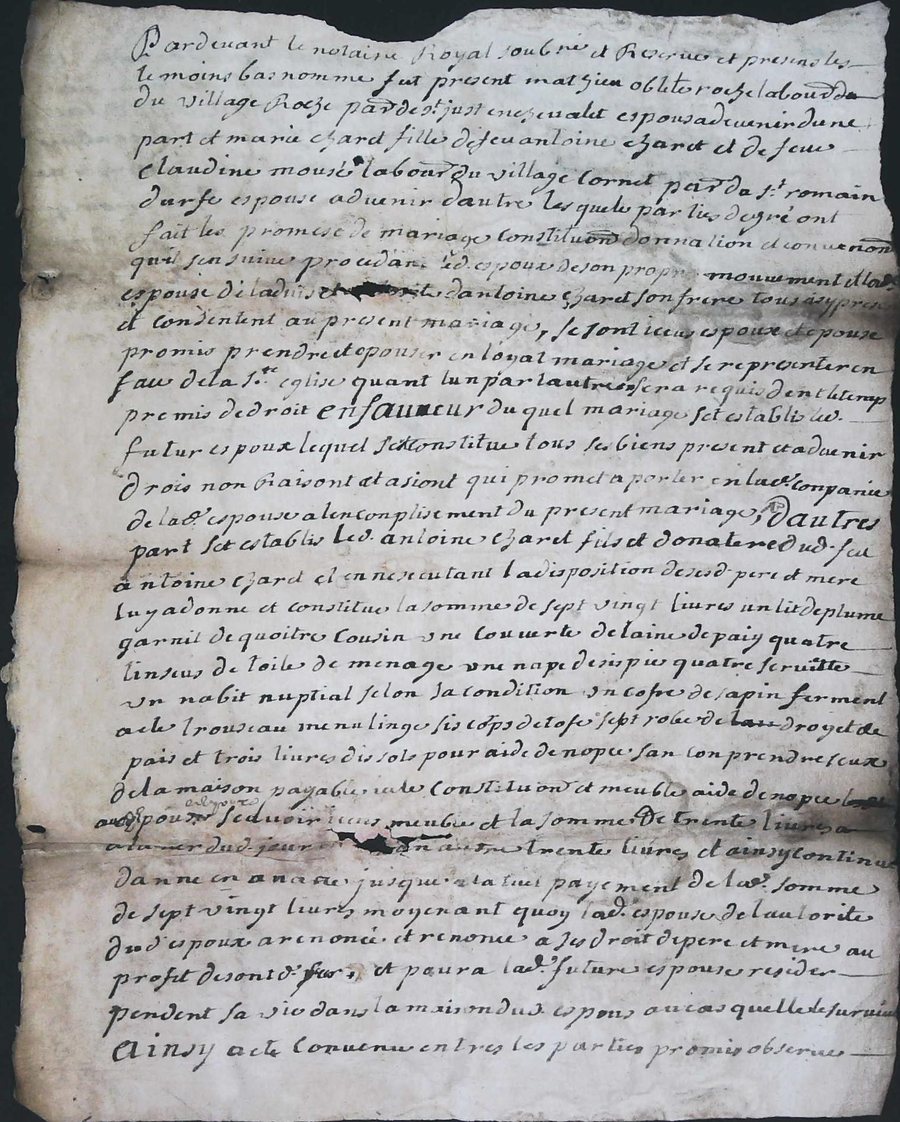 Pardevant le notaire Royal soubné et Reservé et presens les
temoins bas nommé fut present mathieu oblete roche labourd du
du village Roche parde st just enchevalet espous advenir dune
part et marie charet fille de feu antoine charet et de feue
Claudine mousé labourd du village Cornet pard da st romain
durfe espouse advenir dautre les quele parties de gré ont
fait les promese de mariage constituon donnation et convenon
quil sensuive procedant led. espoux de son propre mouvement et lad.
espouse de ladvis et dantoine charet son frere tous isy presen
et consentent au present mariage, se sont iceux espoux et epouse
promis prendre et epouser en loyal mariage et se representer en
face de la ste eglise quant lun par lautre sera requis dent le temp
premis de droit en faumeur du quel mariage set establis led.
futur espoux lequel set constitue tous ses biens present et advenir
drois non Raisont et asiont qui promet aporter en lad. conpanie
de lad. espouse alenconplisement du present mariage, dautres
part set establis led. antoine charet fils et donatere dud. feu
antoine charet el ennesecutant la disposition de sesd. pere et mere
luy a donne et constitue la somme de sept vingt livres un lit de plume
garnit de quoitre cousin une couverte de laine de paiy quatre
linseus de toile de menage une nape de sis pie quatre serviette
un nabit nuptial selon sa condition un cofre de sapin ferment
a cle trouseau menu linge sis cops de tofe sept robe de droget de
pais et trois livres dis sols pour aide de nopce san conprendre seux
de la maison payable constituon et meuble aide de nopce
aud. espoux scavoir iceus meuble et la somme de trente livres a
dud. jour en autre trente livres et ainsy continue
danne en anae jusque a latuel payement de lad. somme
de sept vingt livres moyenant quoy lad. espouse de lautorite
dud. espoux a renoncé et renonce a ses droit de pere et mere au
profit de sont d. frer, et paura lad. future espouse resider
pendent sa vie dans la maison dud. espous au cas quelle le survive
ainsy a ete convenu entres les parties promis observer